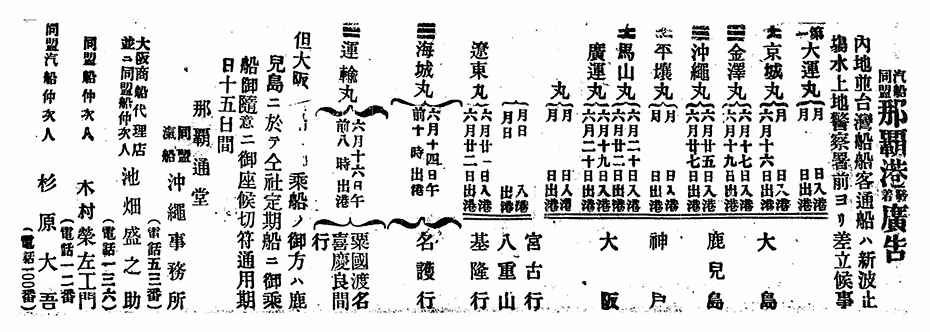 汽船同盟 那覇港發着廣告
內地並台灣船船客通船ハ新波止
塲水上地警察署前ヨリ差立候事
第一大運丸 月 日入港 月 日出港
京城丸 月 日入港 六月十六日出港 大島
金澤丸 六月十九日入港 六月十九日出港
沖繩丸 六月廿五日入港 六月廿七日出港 鹿兒島
平壤丸 月 日入港 月 日出港 神戶
馬山丸 六月二十日入港 六月二十日出港
廣運丸 六月十九日入港 六月二十日出港 大阪
丸 月 日入港 月 日出港
月 日入港 宮古行
月 日出港 八重山
遼東丸 六月廿一日入港 六月廿二日出港 基隆行
海城丸 六月十四日午前十時出港 名護行
運輸丸 六月十六日午前八時出港 粟國渡名喜慶良間行
但大阪 乘船ノ御方ハ鹿
兒島ニ於テ仝社定期船ニ御乘
船御隨意ニ御座候切符通用期
日十五日間
那覇通堂
同盟滊船 沖繩事務所
(電話五三番)
大阪商船代理店並ニ同盟船仲次人 池畑盛之助
(電話一三六)
同盟船仲次人 木村榮左工門
(電話一二番)
同盟汽船仲次人 杉原大吾
(電話二〇〇番)